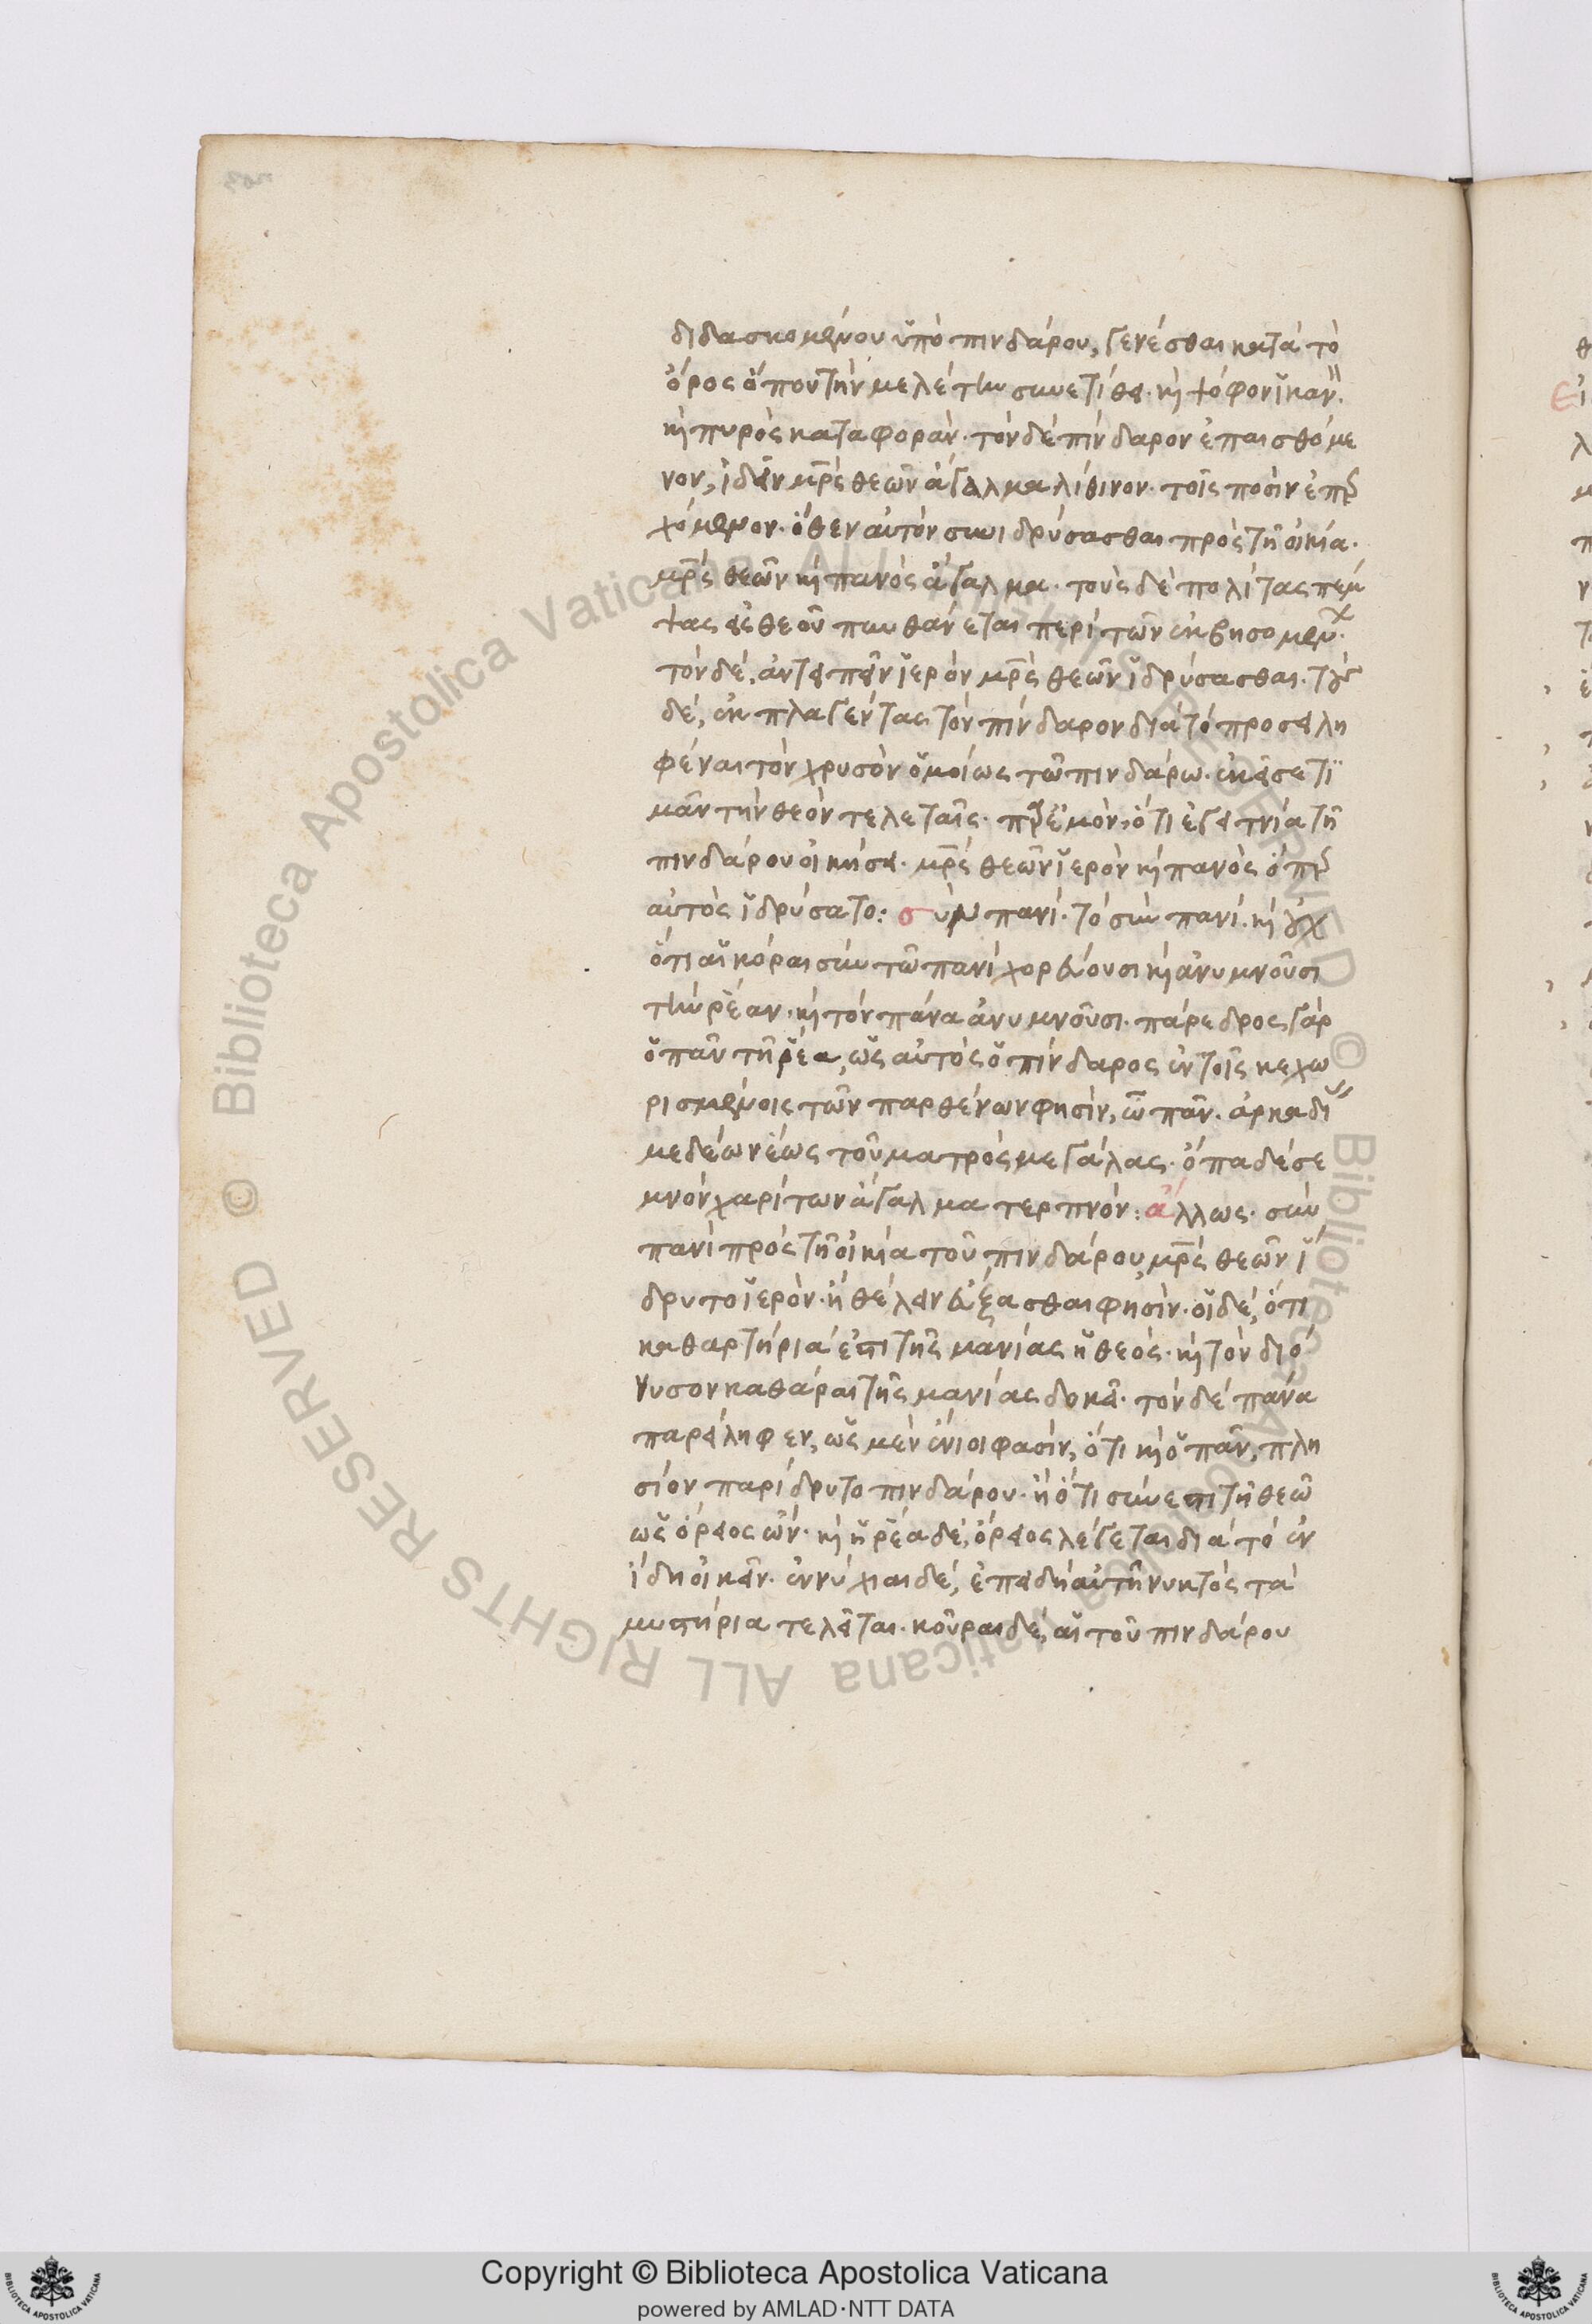 διδασκομένου ὑπὸ πινδάρου, γενέσθαι κατὰ τὸ
ὄρος ὅπου τὴν μελέτην συνετίθει. καὶ ψόφον ἱκανὸν.
καὶ πυρὸς καταφοράν. τὸν δὲ πίνδαρον ἐπαισθόμε
νον, ἰδεῖν μρς θεῶν ἄγαλμα λίθινον. τοῖς ποσὶν ἐπερ
χόμενον. ὅθεν αὐτὸν συνιδρύσασθαι πρὸς τῆ οἰκία.
μρς θεῶν καὶ πανὸς ἄγαλμα. τοὺς δὲ πολίτας πέμ
ψας εἰς θεοῦ πυνθάνεται περὶ τῶν ἐκβησομένων.
τὸν δὲ, ἀντειπεῖν ἱερὸν μρς θεῶν ἱδρύσασθαι. τοὺς
δὲ, ἐκπλαγέντας τὸν πίνδαρον διὰ τὸ προσειλη
φέναι τὸν χρυσὸν ὁμοίως τῶ πινδάρω. ἐκεῖσε τι
μᾶν τὴν θεὸν τελεταῖς. ὅτι ἐγειτνία τῆ
πινδάρου οἰκήσει. μρς θεῶν ἱερὸν καὶ πανὸς ὅπερ
αὐτὸς ἱδρύσατο: σὺμ πανί. τὸ σὺν πανί. καὶ
ὅτι αἱ κόραι σὺν τῶ πανὶ χορεύουσι καὶ ἀνυμνοῦσι
τὴν ῥέαν. καὶ τὸν πάνα ἀνυμνοῦσι. πάρεδρος γὰρ
ὁ πὰν τῆ ῥέα, ὡς αὐτὸς ὁ πίνδαρος ἐν τοῖς κεχω
ρισμένοις τῶν παρθένων φησὶν, ὦ πᾶν. ἀρκαδίας
μεδέων ἕως τοῦ ματρὸς μεγάλας. ὀπαδέ σε
μνὸν χαρίτων ἄγαλμα τερπνόν: ἄλλως. σὺν
πανὶ πρὸς τῆ οἰκία τοῦ πινδάρου μρς θεῶν ἵ
δρυτο ἱερὸν. ἤθελεν εὔξασθαι φησὶν. οἱ δὲ, ὅτι
καθαρτήρια ἐπὶ τῆς μανίας ἡ θεός. καὶ τὸν διό
νυσον καθάραι τῆς μανίας δοκεῖ. τὸν δὲ πάνα
παρείληφεν, ὡς μὲν ἔνιοι φασὶν, ὅτι καὶ ὁ πᾶν, πλη
σίον παρίδρυτο πινδάρου. ἢ ὅτι σύνεστι τῆ θεῶ
ὡς ὄρειος ὤν. καὶ ἡ ῥέα δὲ, ὄρειος λέγεται διὰ τὸ ἐν
ἴδη οἰκεῖν. ἐννύχιαι δὲ, ἐπειδὴ αὐτῆ νυκτὸς τὰ
μυστήρια τελεῖται. κοῦραι δὲ, αἱ τοῦ πινδάρου
Copyright © Biblioteca Apostolica Vaticana
powered by AMLAD·NTT DATA